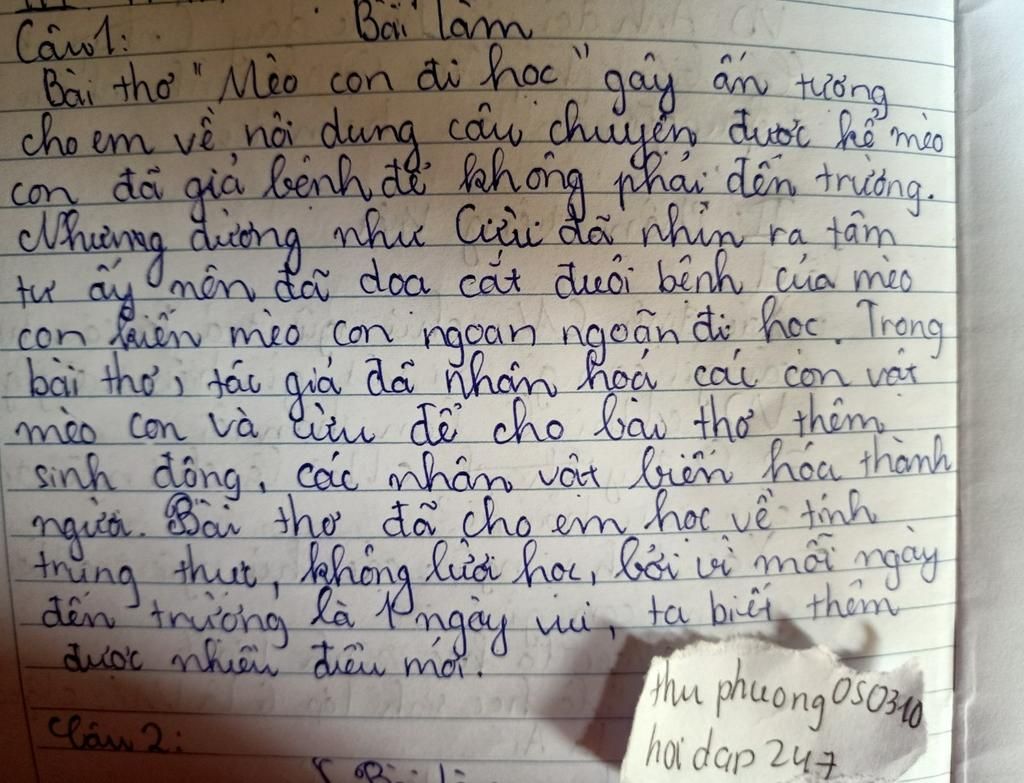 Bài làm
Câu 1:
Bài thơ "Mèo con đi học" gây ấn tượng
cho em về nội dung câu chuyện được kể mèo
con đã giả bệnh để không phải đến trường.
Nhưng dường như Cừu đã nhìn ra tâm
tư ấy nên đã doạ cắt đuôi bệnh của mèo
con khiến mèo con ngoan ngoãn đi học. Trong
bài thơ, tác giả đã nhân hoá các con vật
mèo con và cừu để cho bài thơ thêm
sinh động, các nhân vật biến hóa thành
người. Bài thơ đã cho em học về tính
trung thực, không lười học, bởi vì mỗi ngày
đến trường là 1 ngày vui, ta biết thêm
được nhiều điều mới.
Câu 2:
thu phuong 050310
hoi dap 247